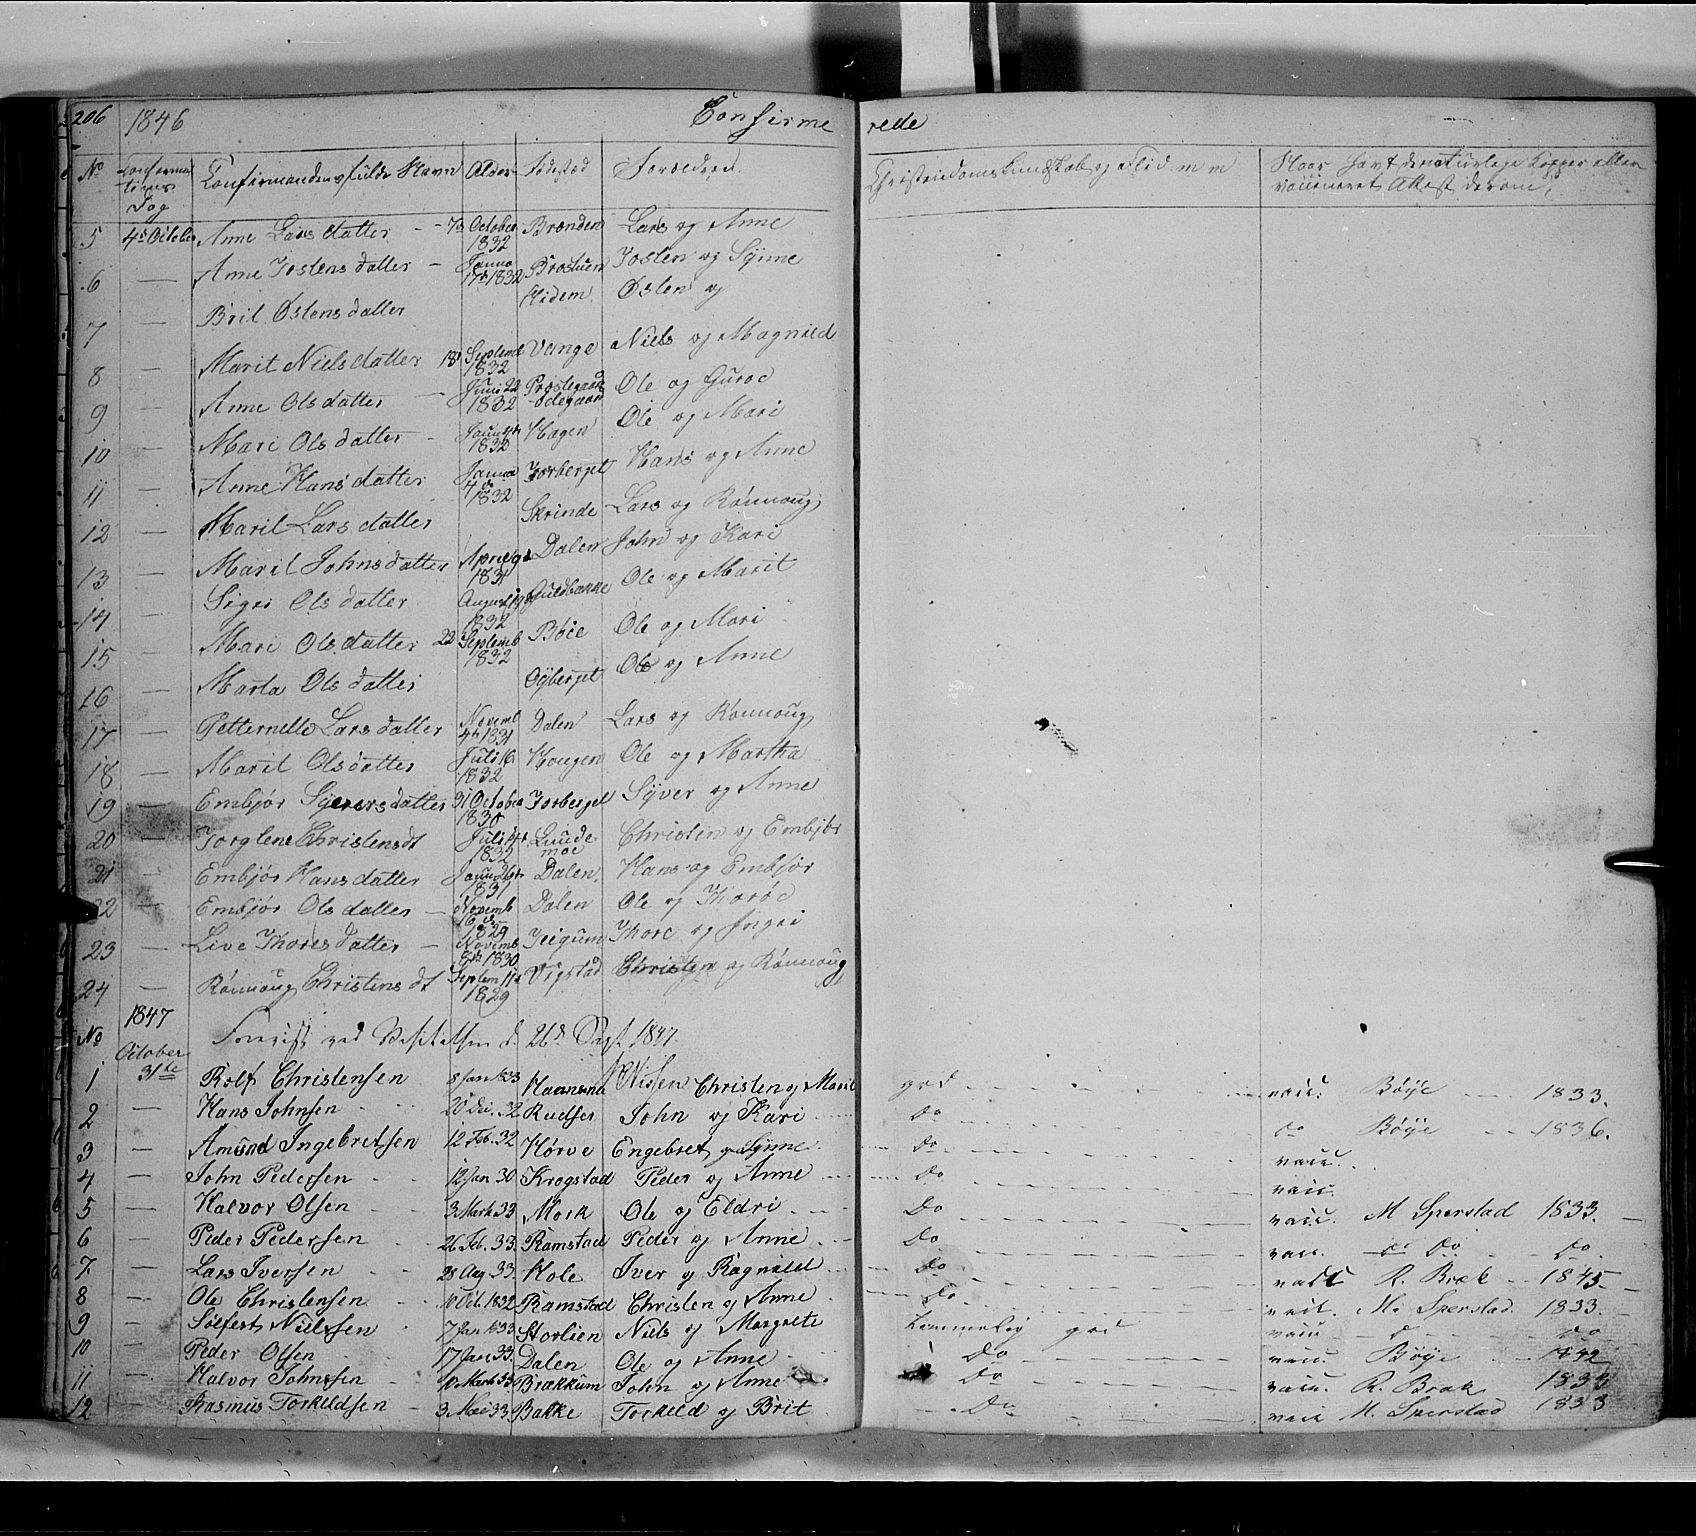 206 1846 Confirmerede
No Confirmations Dag Confirmandens fulde Navn Alder Fødested Forældren Christendomskundskab og Flid m m Naar havt de naturlige Kopper eller vaccineret Attest derom,
5 4de October Anne Larsdatter October 1832 Brenden Lars og Anne
6 — Anne Jostensdatter — Janua 17d 1832 Brostuen Josten og Synne
7 — Brit Østensdatter Hidem Østen og
8 — Marit Nielsdatter 18d Septemb 1832 Vange Niels og Magnild
9 — Anne Olsdatter — Juni 22 1832 Præstegaards Ødegaard Ole og Guroe
10 — Mari Olsdatter - 1832 Hagen Ole og Mari
11 — Anne Hansdatter Janua 4de 1832 Jorberget Hans og Anne
12 — Marit Larsdatter Skrinde Lars og Rønnoug
13 — Marit Johnsdatter April 1831 Dalen John og Kari
14 — Sigri Olsdatter August 1832 Guldbakke Ole og Marit
15 — Mari Olsdatter 22 Septemb 1832 Bøie Ole og Mari
16 — Marta Olsdatter Øyberget Ole og Anne
17 — Petternelle Larsdatter Novemb 4de 1831 Dalen Lars og Rønnoug
18 — Marit Olsdatter Juli 1832 Hougen Ole og Martha
19 — Embjør Syversdatter 31 October 1830 Jorberget Syver og Anne
20 — Torglene Christensdt Juli 4d 1832 Lundemoe Christen og Embjør
21 — Embjør Hansdatter Janu 26de 1831 Dalen Hans og Embjør
22 — Embjør Olsdatter — Novemb 16de 1829 Dalen Ole og Thoroe
23 — Live Thoresdatter — Novemb 8de 1830 Thore og Ingri
24 — Rønnoug Christensdt Septem 11d 1829 Vigstad Christen og Rønnoug
1847
No d 26d Sept. 1847.
October
1 31te Rolf Christensen 8 Jan 1833 Christen og Marit god vacc. Bøye 1833.
2 — Hans Johnsen 20 Dec. 32 Rudser John og Kari Do Do Bøye 1836.
3 — Amund Ingebretsen 12 Feb. 32 Hørve Engebret og Synne Do vacc.
4 — John Pedersen 12 Jan 30 Krogstad Peder og Anne Do vacc.
5 — Halvor Olsen 3 Marts 33 Mork Ole og Eldri Do vacc. M Sperstad 1833.
6 — Peder Pedersen 26 Feb. 33. Ramstad Peder og Anne Do vacc. Do Do
7 — Lars Iversen 28 Aug 33. Hole Iver og Ragnild Do vacc R. Bræk 1845
8 — Ole Christensen 10 Oct. 1832 Ramstad Christen og Anne Do vacc. M. Sperstad 1833
9 — Sølfest Nielssen 7 Jan 1833 Storlien Niels og Margrete temmelig god vacc Do
10 — Peder Olsen 17 Jan 33. Dalen Ole og Anne Do vacc. Bøye 1842
11 — Halvor Johnssen 10 Marts 33 Brækkum John og Anne Do vacc. R. Bræk 1833
12 — Rasmus Torkildsen 3 Mai 33. Bakke Torkeld og Brit Do vacc M. Sperstad 1833